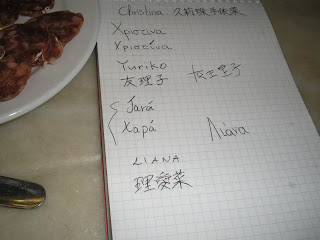 Christina
Χριστινα
Χριστίνα
Yuriko
友理子 友里子
Jará
Χαρά Λιάνα
LIANA
理愛菜